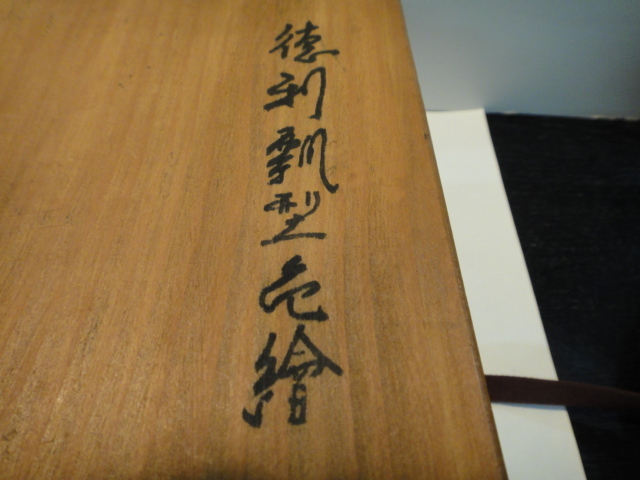 徳利瓢型色繪